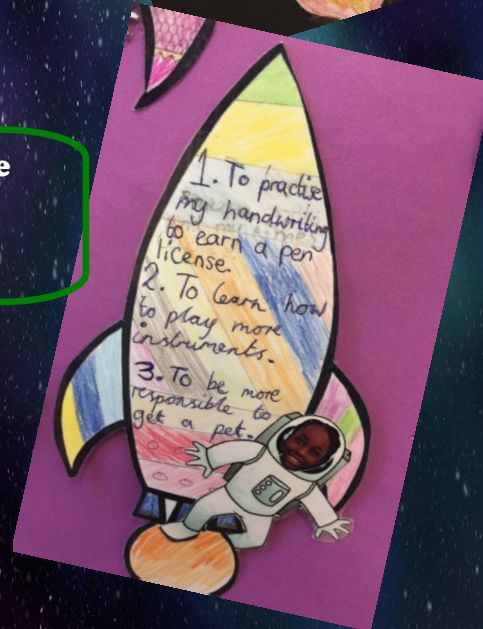 e
1. To practise
my handwriting
to earn a pen
license.
2. To learn how
to play more
instruments.
3. To be more
responsible to
get a pet.